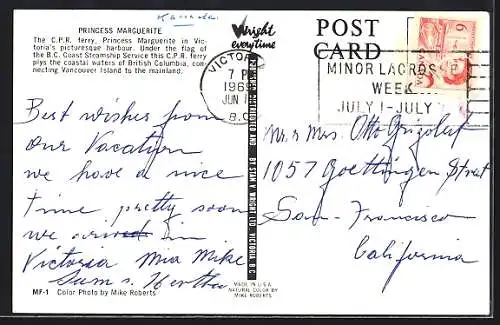 Kanada
PRINCESS MARGUERITE
The C.P.R. ferry, Princess Marguerite in Vic-
toria's picturesque harbour. Under the flag of
the B.C. Coast Steamship Service this C.P.R. ferry
plys the coastal waters of British Columbia, con-
necting Vancouver Island to the mainland.
Wright
everytime
POST
CARD
VICTORIA
7 PM
1969
JUN
B.C.
MINOR LACROSSE
WEEK
JULY 1 - JULY 7
6
Best wishes from
our Vacation
we have a nice
time pretty soon
we in
Victoria Mia Mike
Sum s. Hertha
Mr & Mrs. Otto
1057 Goettingen Street
San-Francisco
California
DISTRIBUTED AND BY STAN V. WRIGHT LTD., VICTORIA, B.C.
MADE IN U.S.A.
NATURAL COLOR BY
MIKE ROBERTS
MF-1 Color Photo by Mike Roberts